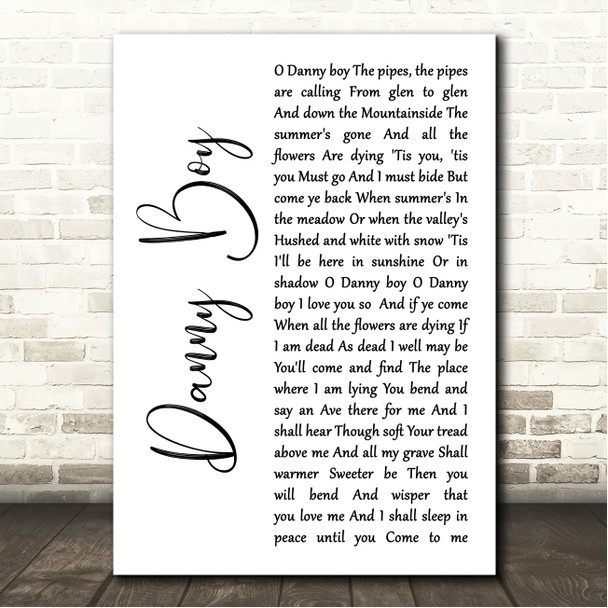 Danny Boy
O Danny boy The pipes, the pipes
are calling From glen to glen
And down the Mountainside The
summer's gone And all the
flowers Are dying 'Tis you, 'tis
you Must go And I must bide But
come ye back When summer's In
the meadow Or when the valley's
Hushed and white with snow 'Tis
I'll be here in sunshine Or in
shadow O Danny boy O Danny
boy I love you so And if ye come
When all the flowers are dying If
I am dead As dead I well may be
You'll come and find The place
where I am lying You bend and
say an Ave there for me And I
shall hear Though soft Your tread
above me And all my grave Shall
warmer Sweeter be Then you
will bend And wisper that
you love me And I shall sleep in
peace until you Come to me